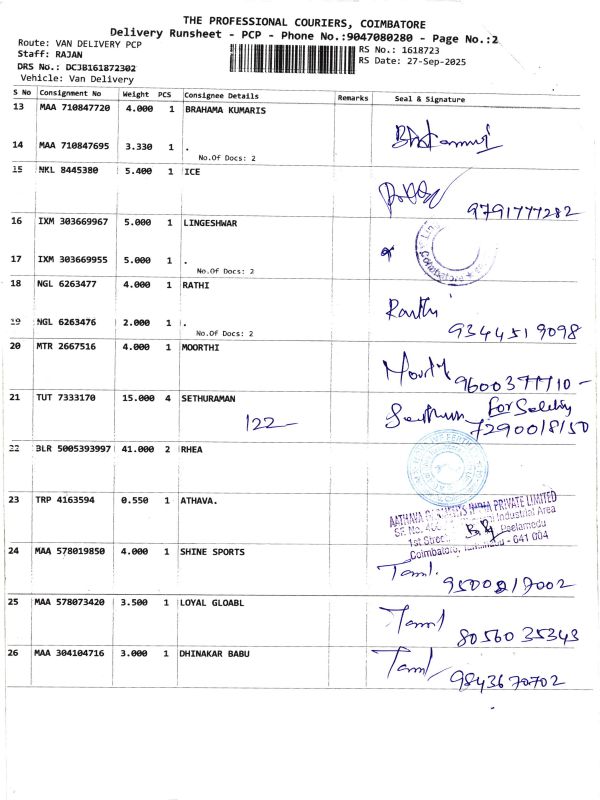 THE PROFESSIONAL COURIERS, COIMBATORE
Delivery Runsheet - PCP - Phone No.:9047080280 - Page No.:2
Route: VAN DELIVERY PCP
RS No.: 1618723
Staff: RAJAN
RS Date: 27-Sep-2025
DRS No.: DCJB161872302
Vehicle: Van Delivery
S No Consignment No Weight PCS Consignee Details Remarks Seal & Signature
13 MAA 710847720 4.000 1 BRAHAMA KUMARIS
14 MAA 710847695 3.330 1 .
No.Of Docs: 2
15 NKL 8445380 5.400 1 ICE
9791777282
16 IXM 303669967 5.000 1 LINGESHWAR
17 IXM 303669955 5.000 1 .
No.Of Docs: 2
Coimbatore
18 NGL 6263477 4.000 1 RATHI
Ranthi
19 NGL 6263476 2.000 1 .
9344519098
No.Of Docs: 2
20 MTR 2667516 4.000 1 MOORTHI
9600377710-
21 TUT 7333170 15.000 4 SETHURAMAN
For
122
22 BLR 5005393997 41.000 2 RHEA
23 TRP 4163594 0.550 1 ATHAVA.
INDIA PRIVATE LIMITED
Industrial Area
1st Street, Peelamedu
Coimbatore, - 641 004
24 MAA 578019850 4.000 1 SHINE SPORTS
Tamil.
25 MAA 578073420 3.500 1 LOYAL GLOABL
Tamil
8056035343
26 MAA 304104716 3.000 1 DHINAKAR BABU
Tamil
9843670702